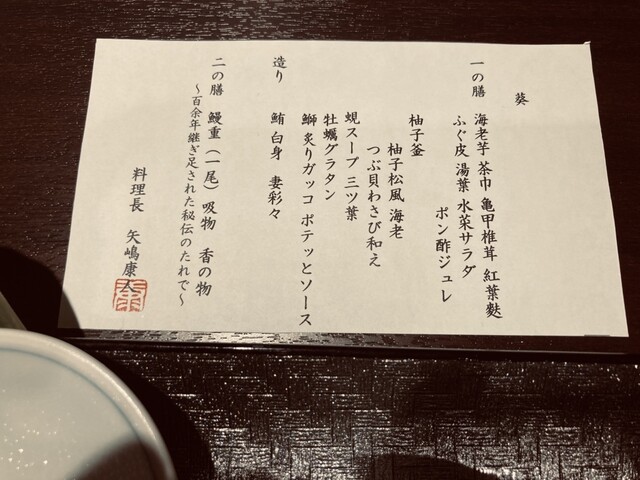 葵
一の膳 海老芋 茶巾 亀甲椎茸 紅葉麩
ふぐ皮 湯葉 水菜サラダ
ポン酢ジュレ
柚子釜
柚子松風 海老
つぶ貝わさび和え
蜆スープ 三ツ葉
牡蠣グラタン
鰤炙りガッコ ポテッとソース
造り 鮪 白身 妻彩々
二の膳 鰻重(一尾) 吸物 香の物
～百余年継ぎ足された秘伝のたれで～
料理長 矢嶋康人